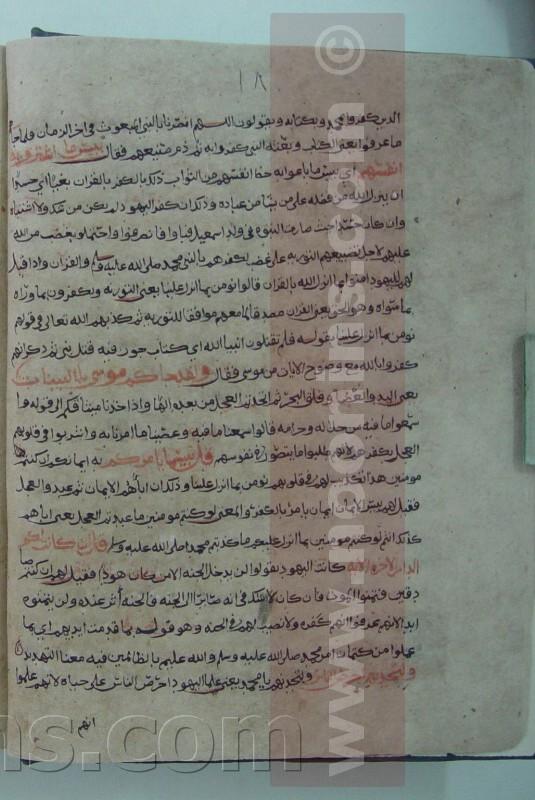 ١٨
الذين كفروا بمحمد وبكتابه ويقولون اللهم انصرنا بالنبي المبعوث في اخر الزمان فلما جا
ما عرفوا يعني الكتاب وبعثة النبي كفروا به ثم ذم صنيعهم فقال بيس ما اشتروا به
انفسهم اي بيس ما باعوا به حظ انفسهم من الثواب بالكفر بالقران بغيا اي حسدا
ان ينزل الله من فضله على من يشا من عباده وذلك ان كفر اليهود لم يكن من شك ولا اشتباه
وان كان حسدا حيث صارت النبوة في ولد اسمعيل فباوا فانصرفوا واحتملوا بغضب من الله
عليهم لاجل تضييعهم التورية على غضب لكفرهم بالنبي محمد صلى الله عليه وسلم والقران واذا قيل
لهم لليهود امنوا بما انزل الله بالقران قالوا نومن بما انزل علينا يعني التورية ويكفرون بما وراه
بما سواه وهو الحق يعني القران مصدقا لما معهم موافقا للتورية ثم كذبهم الله تعالى في قولهم
نومن بما انزل علينا بقوله فلم تقتلون انبيا الله اي كتاب جوز فيه قتل نبي ثم ذكر انهم
كفروا بالله مع وضوح الايات من موسى فقال ولقد جاكم موسى بالبينات
يعني اليد والعصا وفلق البحر ثم اتخذتم العجل من بعده الها واذ اخذنا ميثاقكم الى قوله وا
سمعوا ما فيه من حلاله وحرامه قالوا سمعنا ما فيه وعصينا ما امرنا به واشربوا في قلوبهم
العجل بكفرهم قل بيسما يامركم به ايمانكم ان كنتم
مومنين هذا تكذيب لهم في قولهم نومن بما انزل علينا وذلك ان اباهم عبدو العجل
فقيل لهم بيس الايمان ايمان يامر بالكفر والمعنى لو كنتم مومنين ما عبدتم العجل يعني اباهم
كذلك انتم لو كنتم مومنين بما انزل عليكم ما كذبتم محمدا صلى الله عليه وسلم قل ان كانت لكم
الدار الاخرة الاية كانت اليهود يقولوا لن يدخل الجنة الا من كان هودا فقيل لهم ان كنتم صا
دقين فتمنوا الموت فان من كان لا يشك في انه صاير الى الجنة فالجنة اثر عنده ولن يتمنوه
ابدا لانهم عرفوا انهم كفره ولا نصيب لهم في الجنة وهو قوله بما قدمت ايديهم اي بما
عملوا من كتمان امر محمد صلى الله عليه وسلم والله عليم بالظالمين فيه معنا التهديد
ولتجدنهم يا محمد يعني علما اليهود احرص الناس على حياة لانهم علموا
انهم
©
www.maorlins.com
ns.com